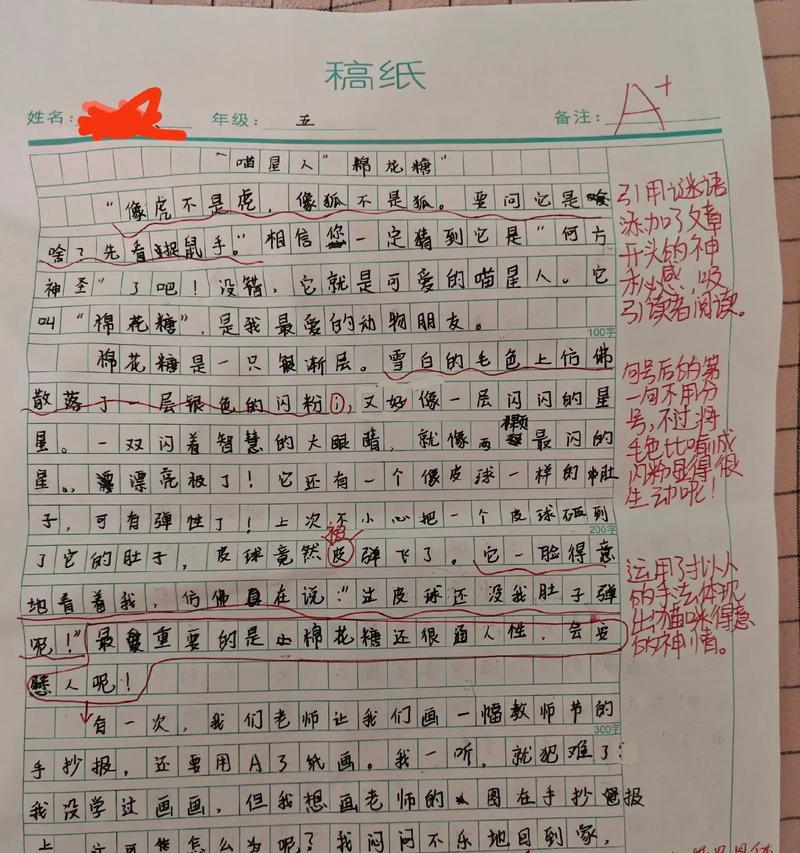 稿纸
姓名:
年级: 五
备注:
A+
"喵星人"棉花糖"
"像虎不是虎，像狐不是狐。要问它是啥
啥了先看捉鼠手。"相信您一定猜到它是"何方
神圣"了吧！没错，它就是可爱的喵星人。它
叫"棉花糖"，是我最爱的动物朋友。
100字
棉花糖是一只银渐层。雪白的毛色上仿佛
散落了一层银色的闪粉，又好像一层闪闪的星
星。一双闪着智慧的大眼睛，就像两颗最闪的
星。漂亮极了！它还有一个像皮球一样的肚
子，可有弹性了！上次不小心把一个皮球砸到
200字
了它的肚子，皮球竟然被弹飞了。它一脸得意
地看着我，仿佛在说："这皮球还没我肚子弹
呢！"最重要的是棉花糖还很通人性，会安
慰人呢！
有一次，我们老师让我们画一幅教师节的
300字
手抄报，还要用A3纸画。我一听，就犯难了：
我没学过画画，但我想画老师的图在手抄报
上，这可能怎么为呢？我闷闷不乐地回到家，
引用谜语
添加了文章
开头的神
秘感，吸
引读者阅读。
句号后的第
一句不用分
号，不过将
毛色比喻成
闪粉显得很
生动呢！
运用了拟人
的手法体现
出猫咪得意
的神情。